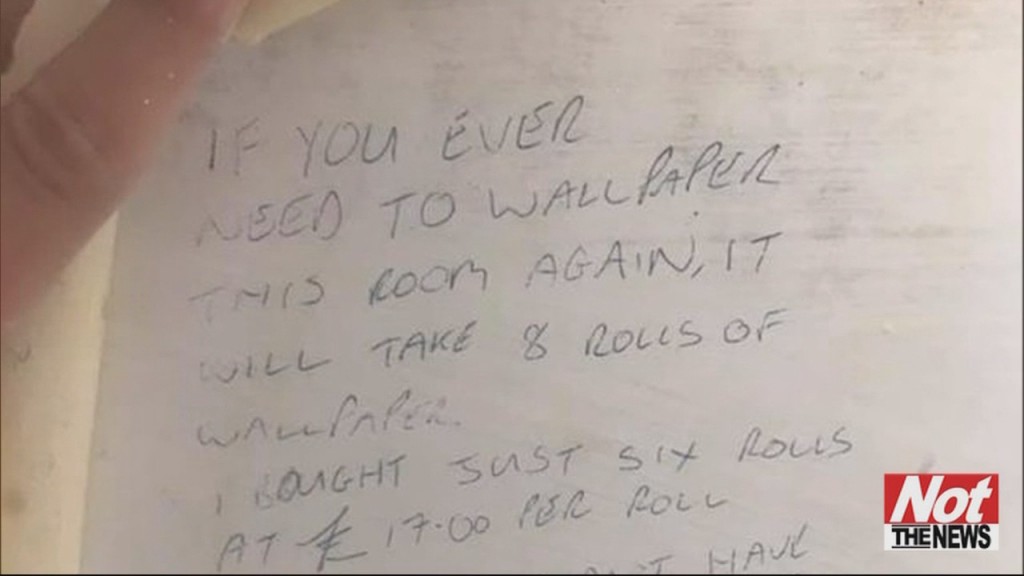 IF YOU EVER
NEED TO WALLPAPER
THIS ROOM AGAIN, IT
WILL TAKE 8 ROLLS OF
WALLPAPER.
I BOUGHT JUST SIX ROLLS
AT £17.00 PER ROLL
HAVE
Not
THE NEWS